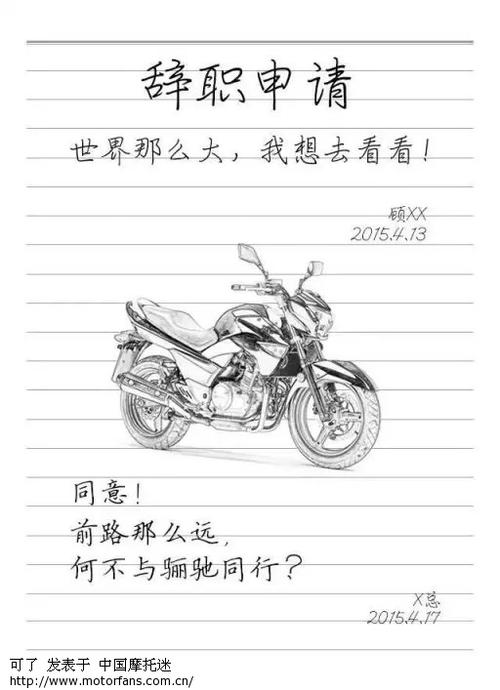 辞职申请
世界那么大，我想去看看！
顾XX
2015.4.13
同意！
前路那么远，
何不与骊驰同行？
X总
2015.4.17
可了 发表于 中国摩托迷
http://www.motorfans.com.cn/